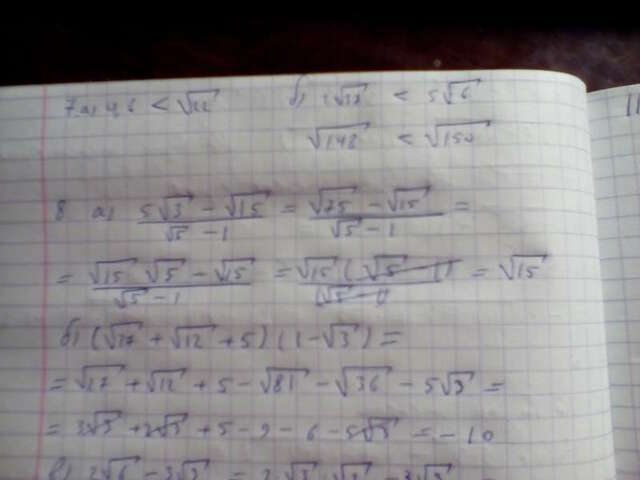 7. а) 4,6 < √22 б) 2√37 < 5√6
√148 < √150
8 а) (5√3 − √15)/(√5 − 1) = (√75 − √15)/(√5 − 1) =
= (√15 √5 − √15)/(√5 − 1) = √15 (√5 − 1)/(√5 − 1) = √15
б) (√27 + √12 + 5) (1 − √3) =
= √27 + √12 + 5 − √81 − √36 − 5√3 =
= 3√3 + 2√3 + 5 − 9 − 6 − 5√3 = −10